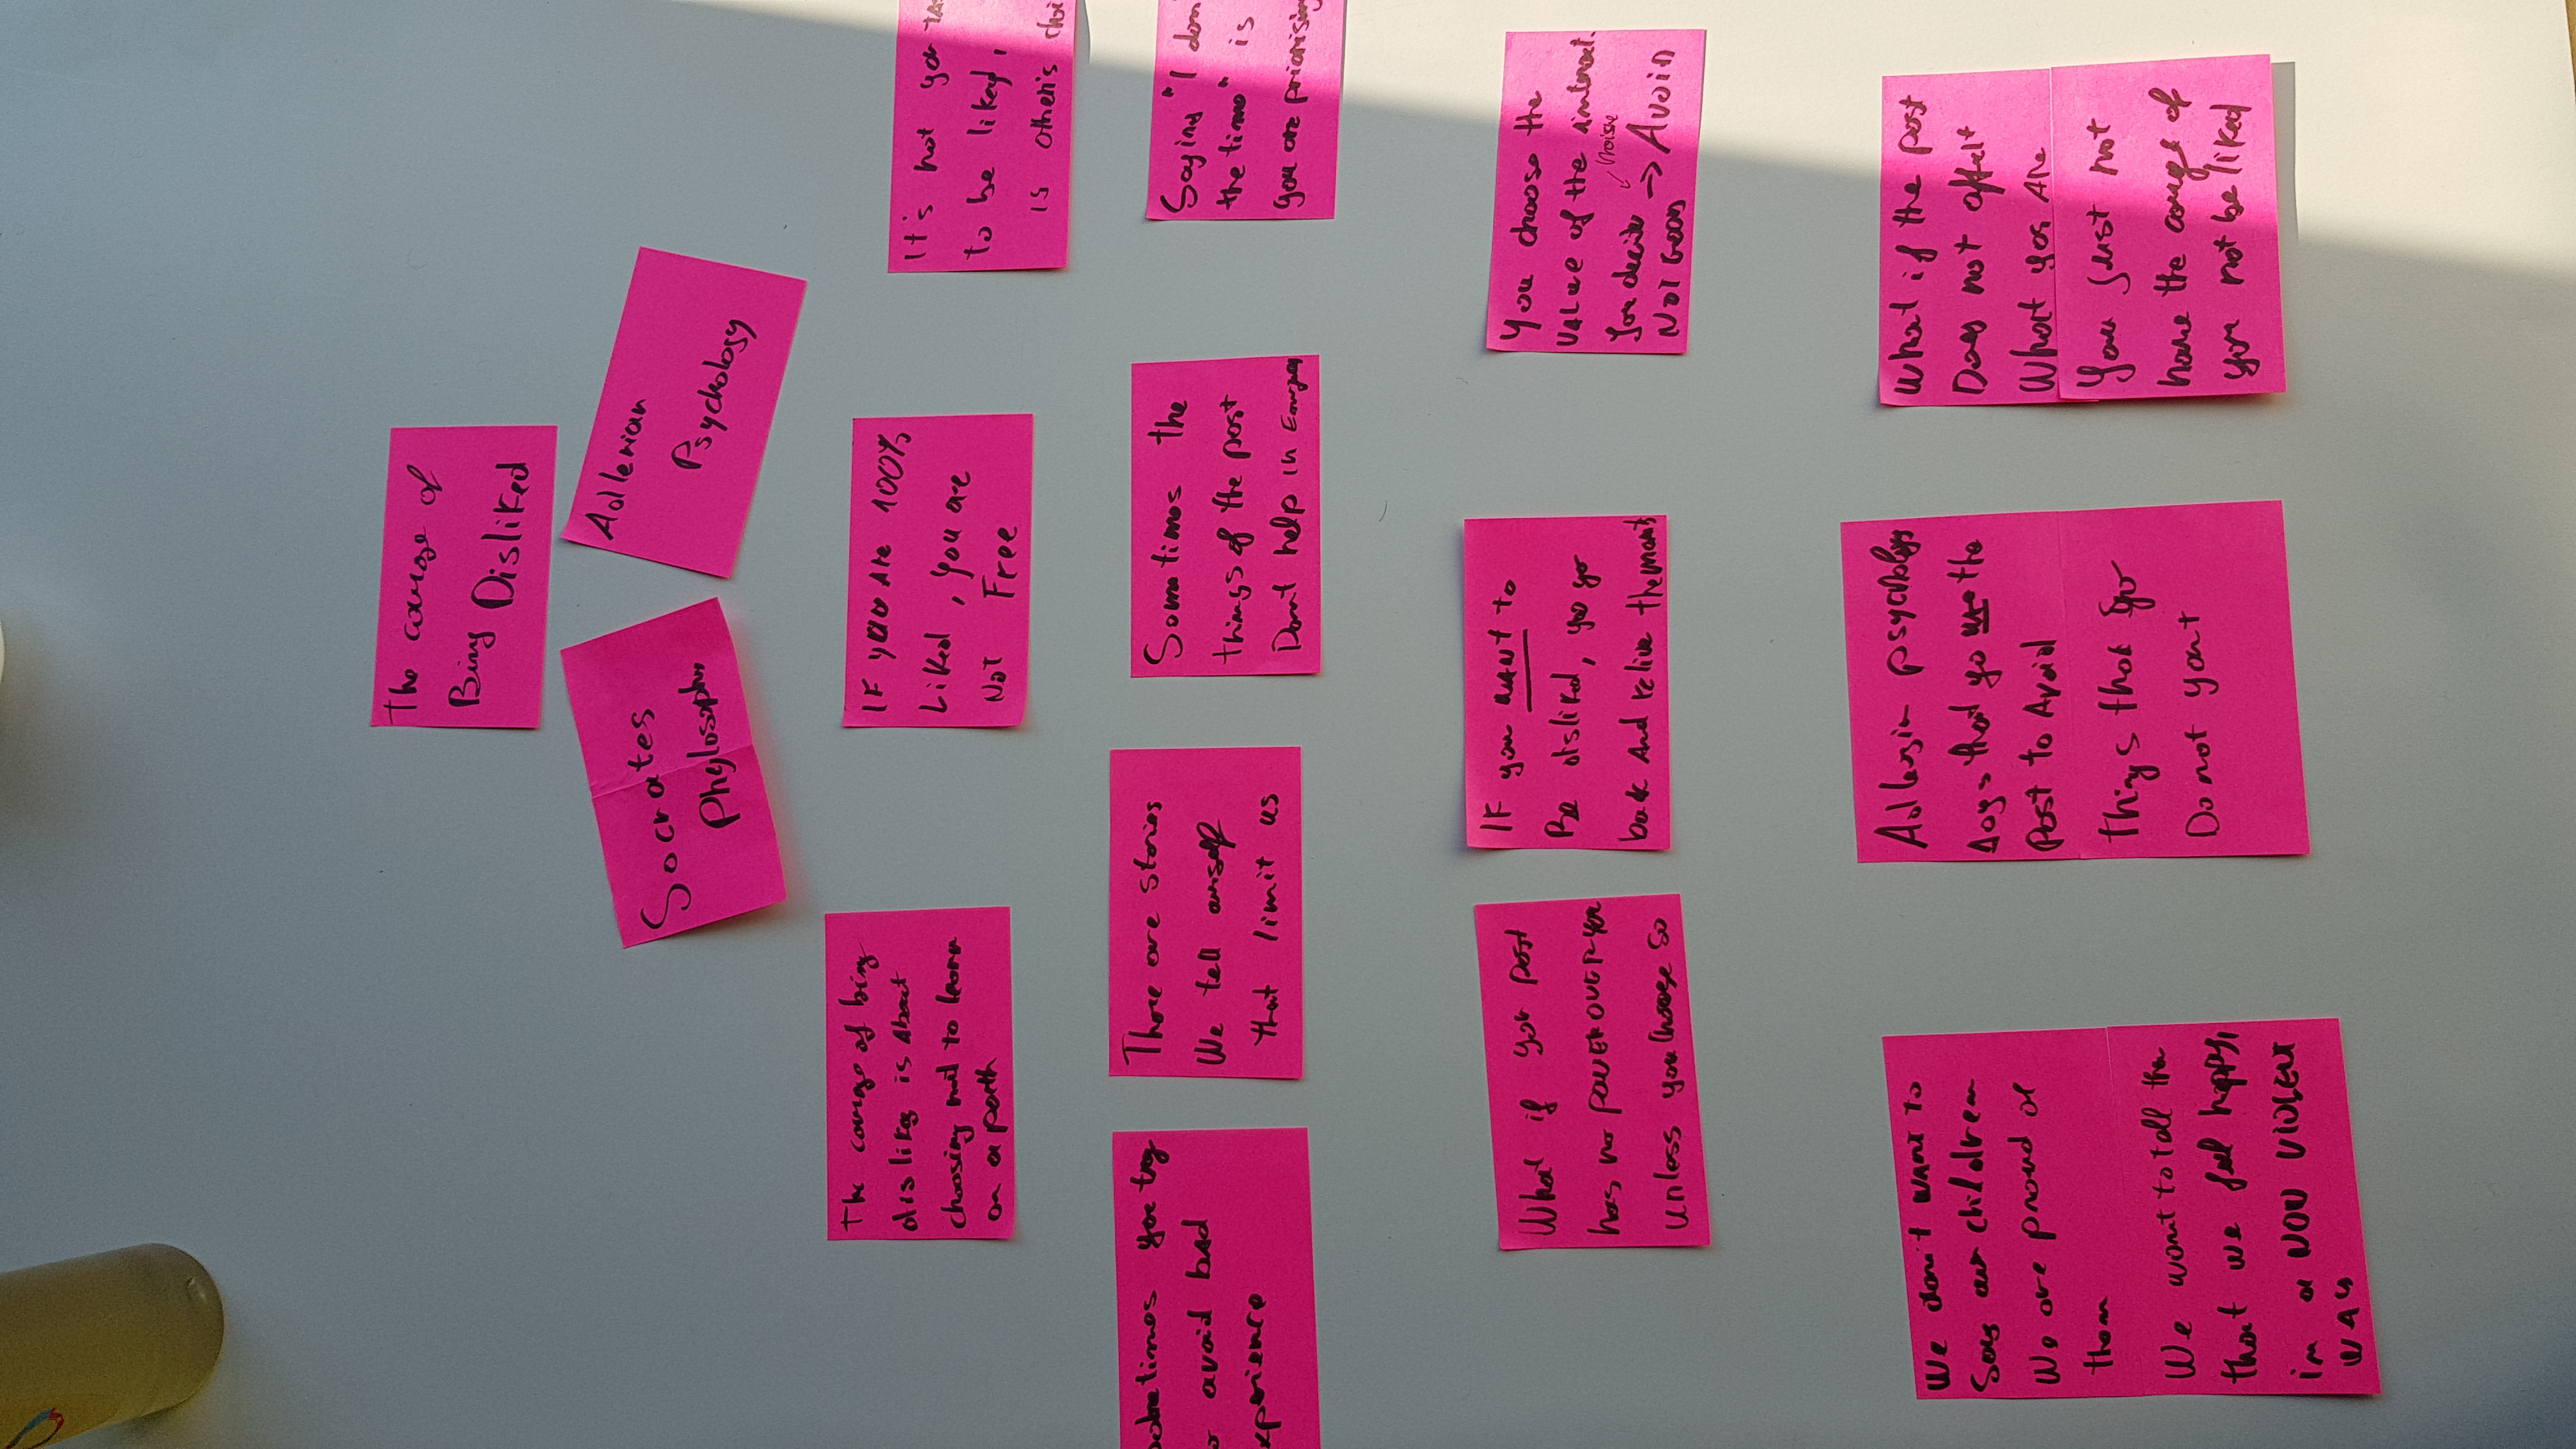 The courage of
Bing Disliked
Socrates
Phylosophy
Adlerian
Psychology
The courage of bing
dislikes is About
choosing not to learn
on a path
IF you Are 100%
Liked, you are
NOT Free
It's not you
to be liked,
is other's
you try
avoid bad
There are stories
We tell ourself
that limit us
Sometimes the
things of the past
Dont help in
Saying "I don
the time" is
you are priorising
What if you past
has no POWER OVER you
unless you choose so
IF you WANT to
Be disliked, you go
back And relive
You choose the
VALUE of the interact.
You decide
NOT GOOD → AVOID
We don't WANT to
Say our children
We are proud of
them
We want to tell the
that we feel happy,
in a NON VIOLENT
WAY
psychology
says that yo use the
Past to Avoid
Things that
Do not
What if the past
Does not affect
What you Are
You just not
have the courage of
you not be liked